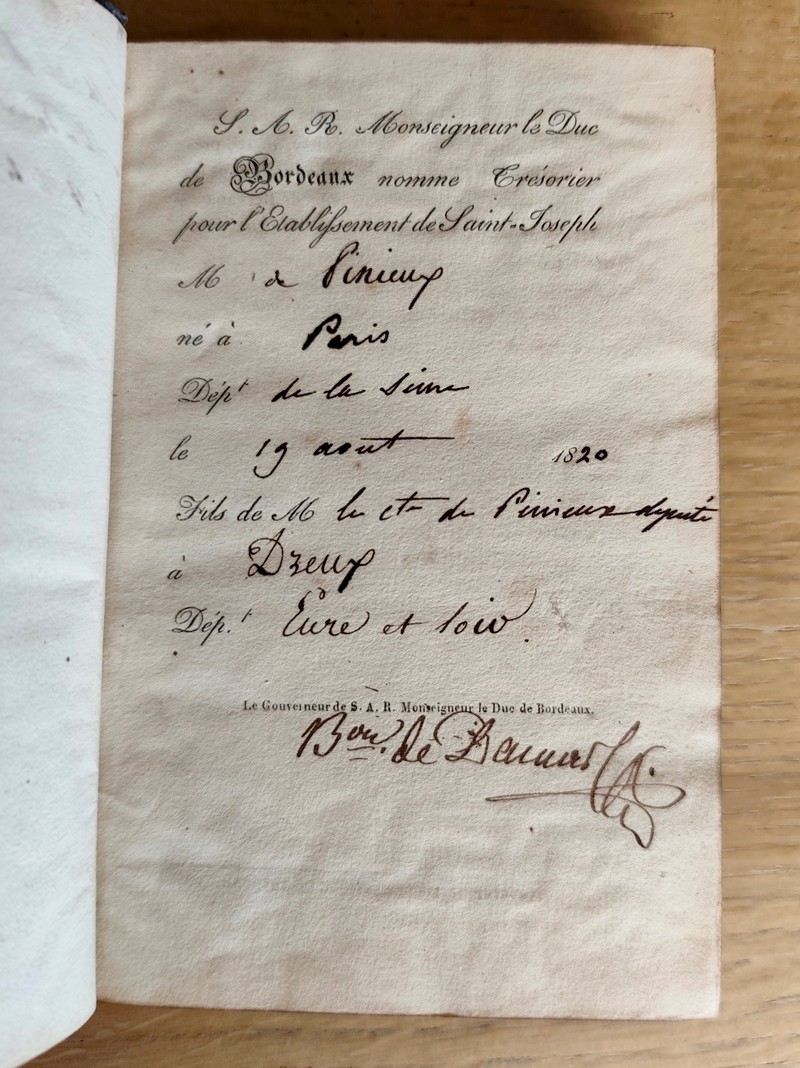 S. A. R. Monseigneur le Duc
de Bordeaux nomme Trésorier
pour l'Etablissement de Saint-Joseph
M de Pinieux
né à Paris
Dépt de la Seine
le 19 aout 1820
Fils de M le cte de Pinieux député
à Dreux
Dép.t Eure et loir
Le Gouverneur de S. A. R. Monseigneur le Duc de Bordeaux.
Bon. de Damas